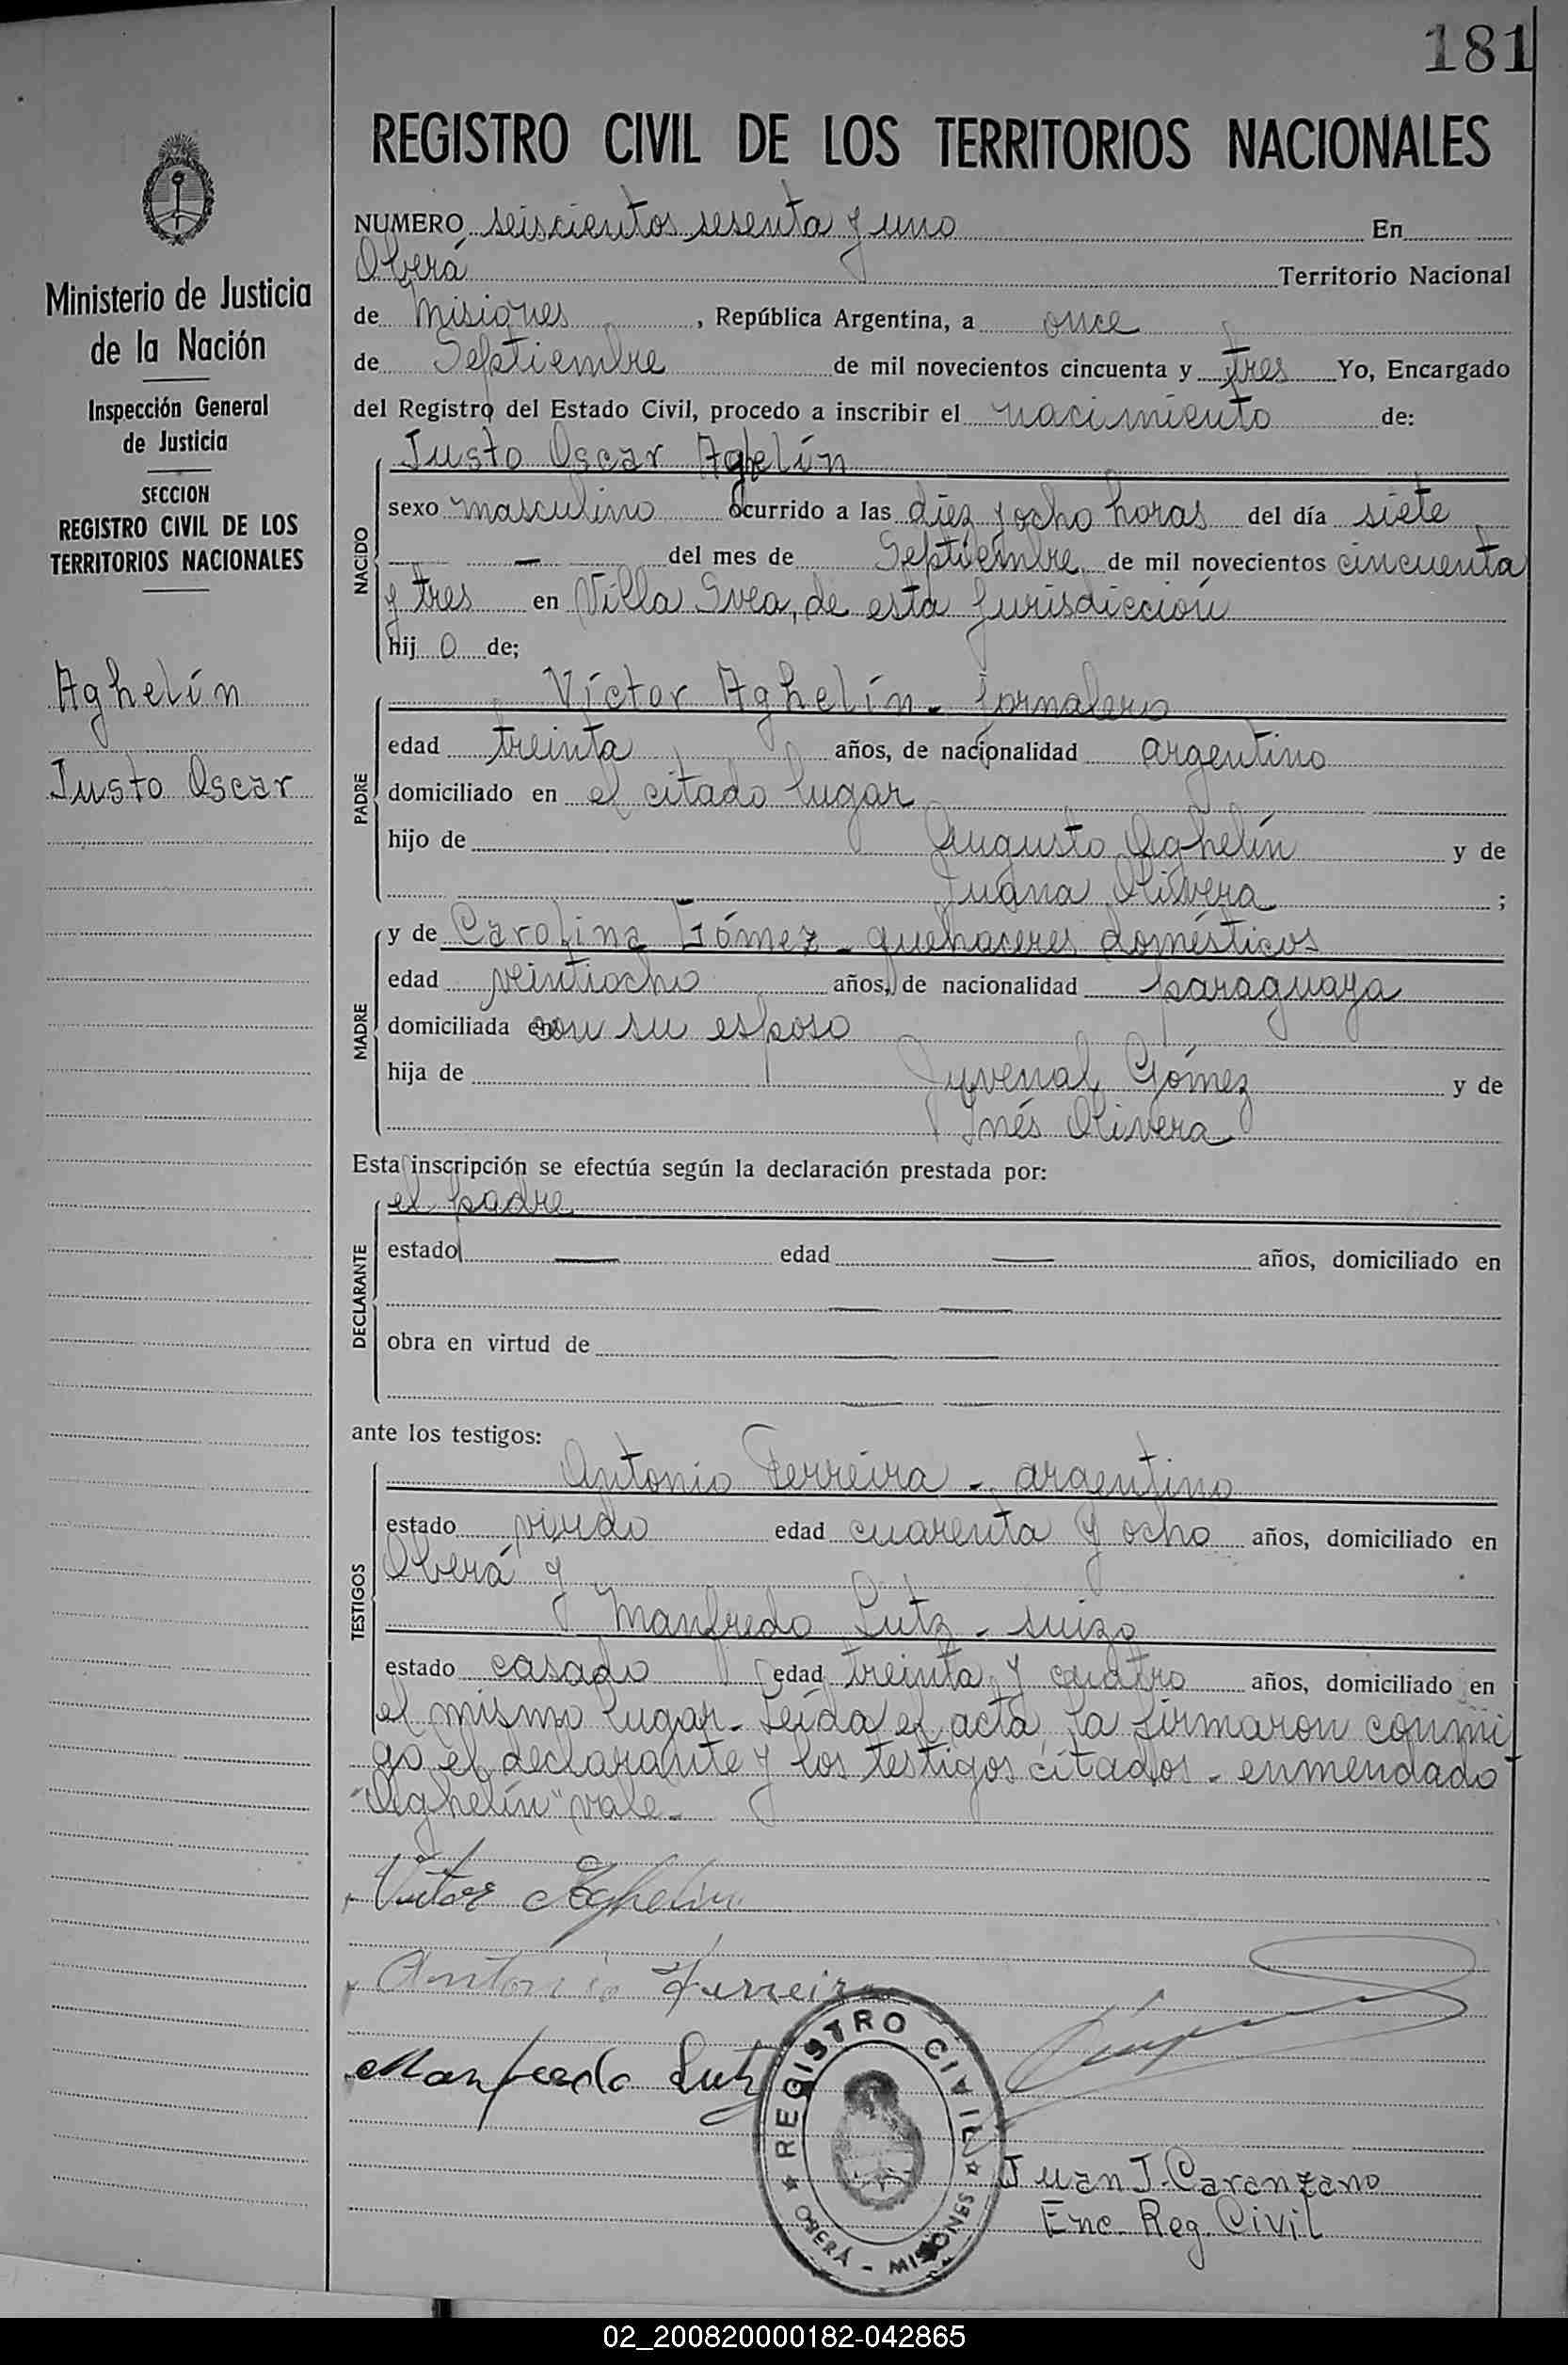 181
REGISTRO CIVIL DE LOS TERRITORIOS NACIONALES
Ministerio de Justicia
de la Nación
Inspección General
de Justicia
SECCION
REGISTRO CIVIL DE LOS
TERRITORIOS NACIONALES
Aghelín
Justo Oscar
NUMERO seiscientos sesenta y uno En
Oberá Territorio Nacional
de Misiones, República Argentina, a once
de Septiembre de mil novecientos cincuenta y tres Yo, Encargado
del Registro del Estado Civil, procedo a inscribir el nacimiento de:
NACIDO
Justo Oscar Aghelín
sexo masculino ocurrido a las diez y ocho horas del día siete
— del mes de Septiembre de mil novecientos cincuenta
y tres en Villa Svea, de esta jurisdicción
hij o de;
PADRE
Víctor Aghelín - jornalero
edad treinta años, de nacionalidad argentino
domiciliado en el citado lugar
hijo de Augusto Aghelín y de
Juana Olivera ;
MADRE
y de Carolina Gómez - quehaceres domésticos
edad veintiocho años, de nacionalidad paraguaya
domiciliada en con su esposo
hija de Juvenal Gómez y de
Inés Olivera
Esta inscripción se efectúa según la declaración prestada por:
DECLARANTE
el padre
estado — edad — años, domiciliado en
— —
obra en virtud de — —
— —
ante los testigos:
TESTIGOS
Antonio Ferreira - argentino
estado viudo edad cuarenta y ocho años, domiciliado en
Oberá y
Manfredo Lutz - suizo
estado casado edad treinta y cuatro años, domiciliado en
el mismo lugar - Leída el acta, la firmaron conmi
go el declarante y los testigos citados - enmendado
"Aghelín" vale -
Victor Aghelin
Antonio Ferreira
Manfredo Lutz
REGISTRO CIVIL
OBERÁ - MISIONES
Juan J. Caranzano
Enc. Reg. Civil
02_200820000182-042865